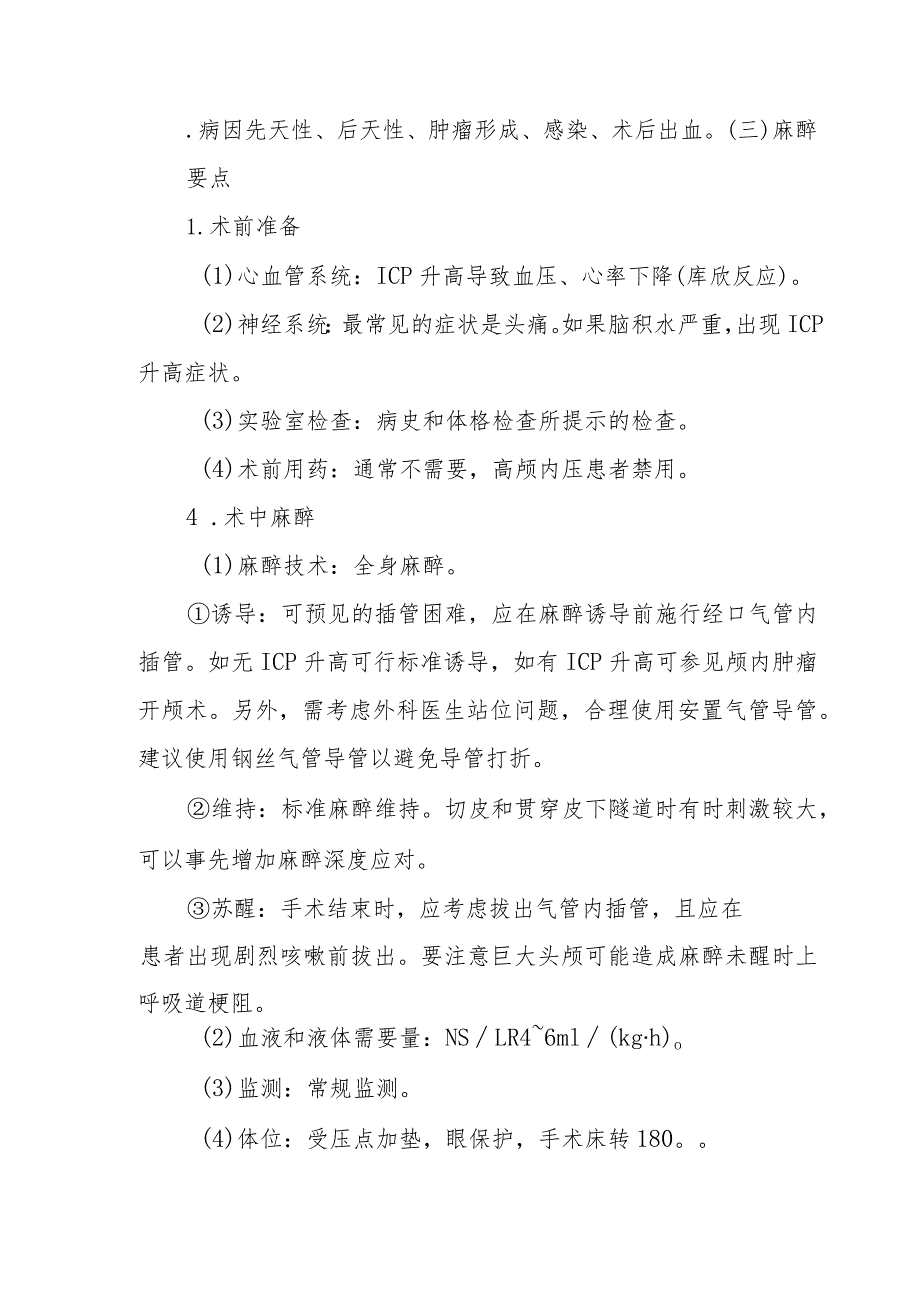 .病因先天性、后天性、肿瘤形成、感染、术后出血。(三)麻醉
要点
1.术前准备
(1)心血管系统：ICP升高导致血压、心率下降(库欣反应)。
(2)神经系统：最常见的症状是头痛。如果脑积水严重，出现ICP
升高症状。
(3)实验室检查：病史和体格检查所提示的检查。
(4)术前用药：通常不需要，高颅内压患者禁用。
4 .术中麻醉
(1)麻醉技术：全身麻醉。
①诱导：可预见的插管困难，应在麻醉诱导前施行经口气管内
插管。如无ICP升高可行标准诱导，如有ICP升高可参见颅内肿瘤
开颅术。另外，需考虑外科医生站位问题，合理使用安置气管导管。
建议使用钢丝气管导管以避免导管打折。
②维持：标准麻醉维持。切皮和贯穿皮下隧道时有时刺激较大，
可以事先增加麻醉深度应对。
③苏醒：手术结束时，应考虑拔出气管内插管，且应在
患者出现剧烈咳嗽前拔出。要注意巨大头颅可能造成麻醉未醒时上
呼吸道梗阻。
(2)血液和液体需要量：NS／LR4~6ml／(kg·h)。
(3)监测：常规监测。
(4)体位：受压点加垫，眼保护，手术床转180。。